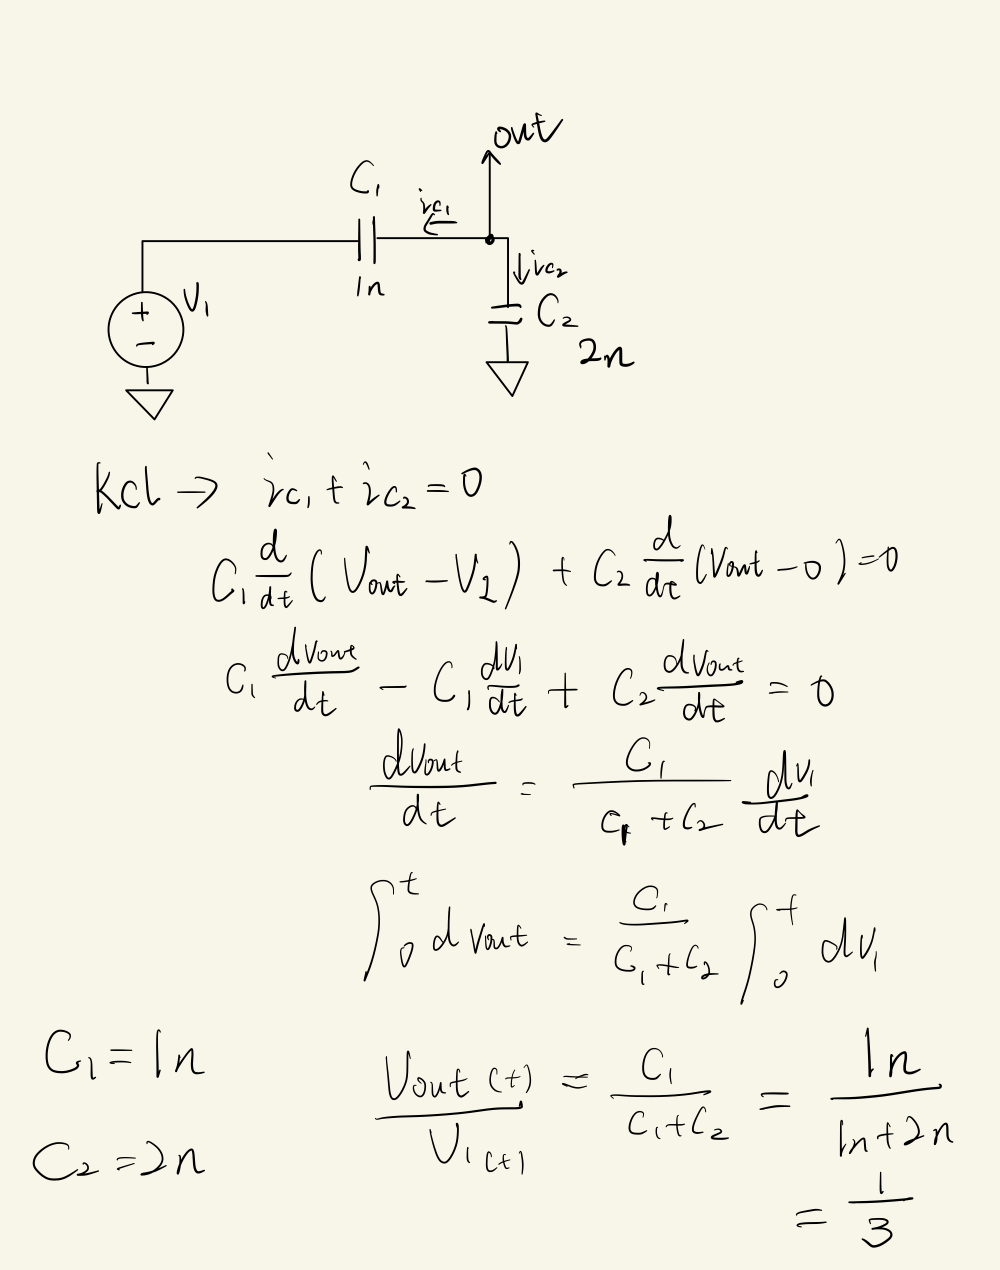 out
C₁
ic₁
V₁
+
−
1n
ic₂
C₂
2n
KCL → ic₁ + ic₂ = 0
C₁ d/dt (Vout − V₁) + C₂ d/dt (Vout − 0) = 0
C₁ dVout/dt − C₁ dV₁/dt + C₂ dVout/dt = 0
dVout/dt = C₁/(C₁ + C₂) dV₁/dt
∫₀ᵗ dVout = C₁/(C₁ + C₂) ∫₀ᵗ dV₁
C₁ = 1n
Vout(t)/V₁(t) = C₁/(C₁ + C₂) = 1n/(1n + 2n)
C₂ = 2n
= 1/3